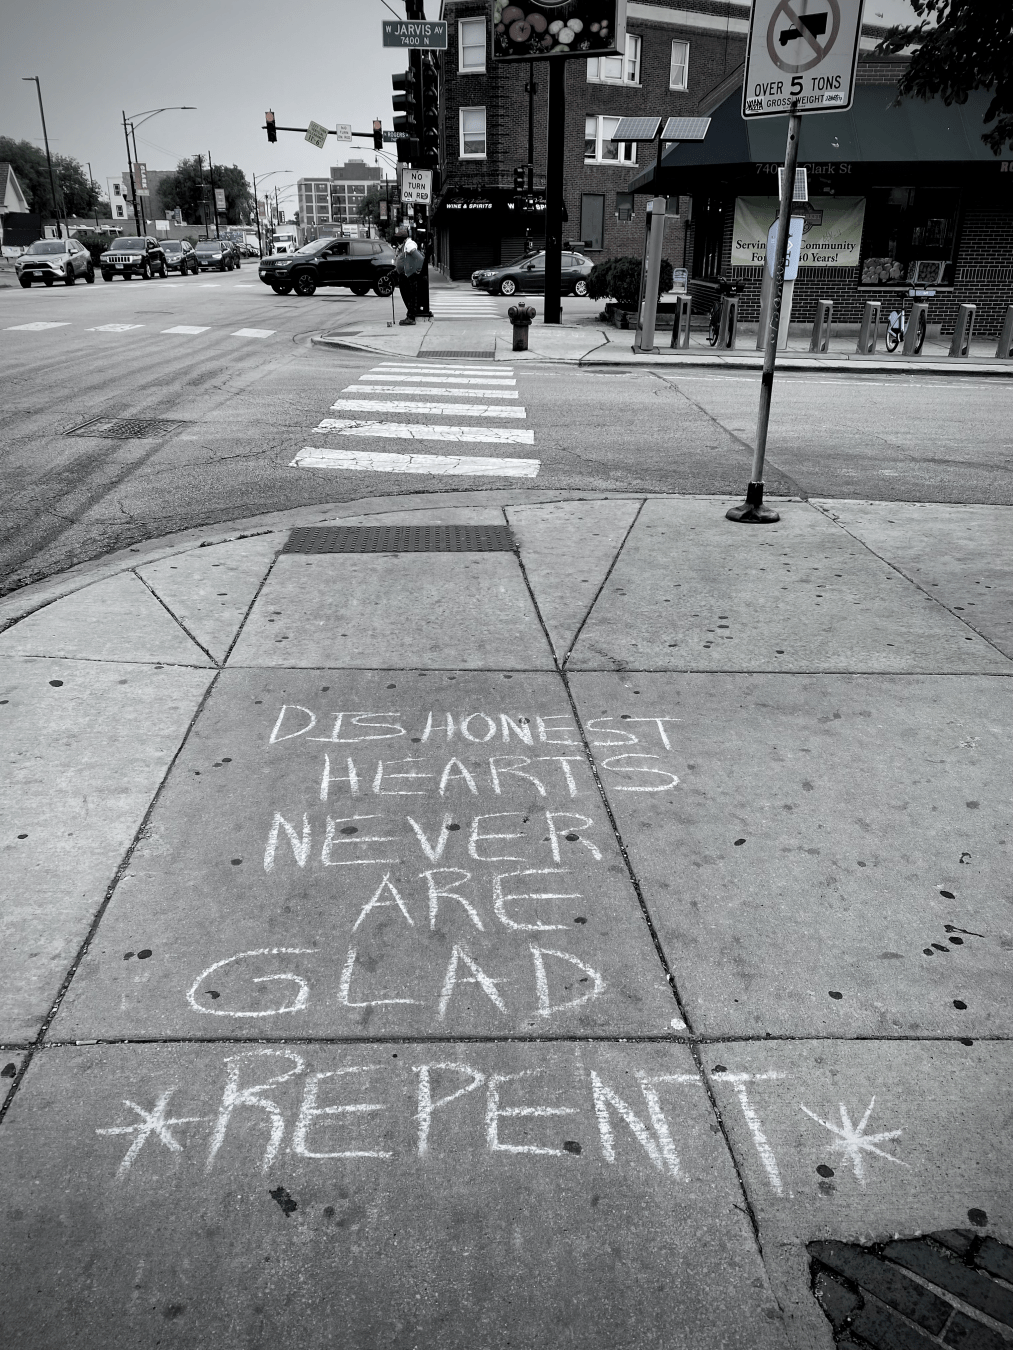 W JARVIS AV
7400 N
OVER 5 TONS
GROSS WEIGHT
ROGERS
NO
TURN
ON RED
WINE & SPIRITS
Clark St
Community
40 Years!
DISHONEST
HEARTS
NEVER
ARE
GLAD
*REPENT*